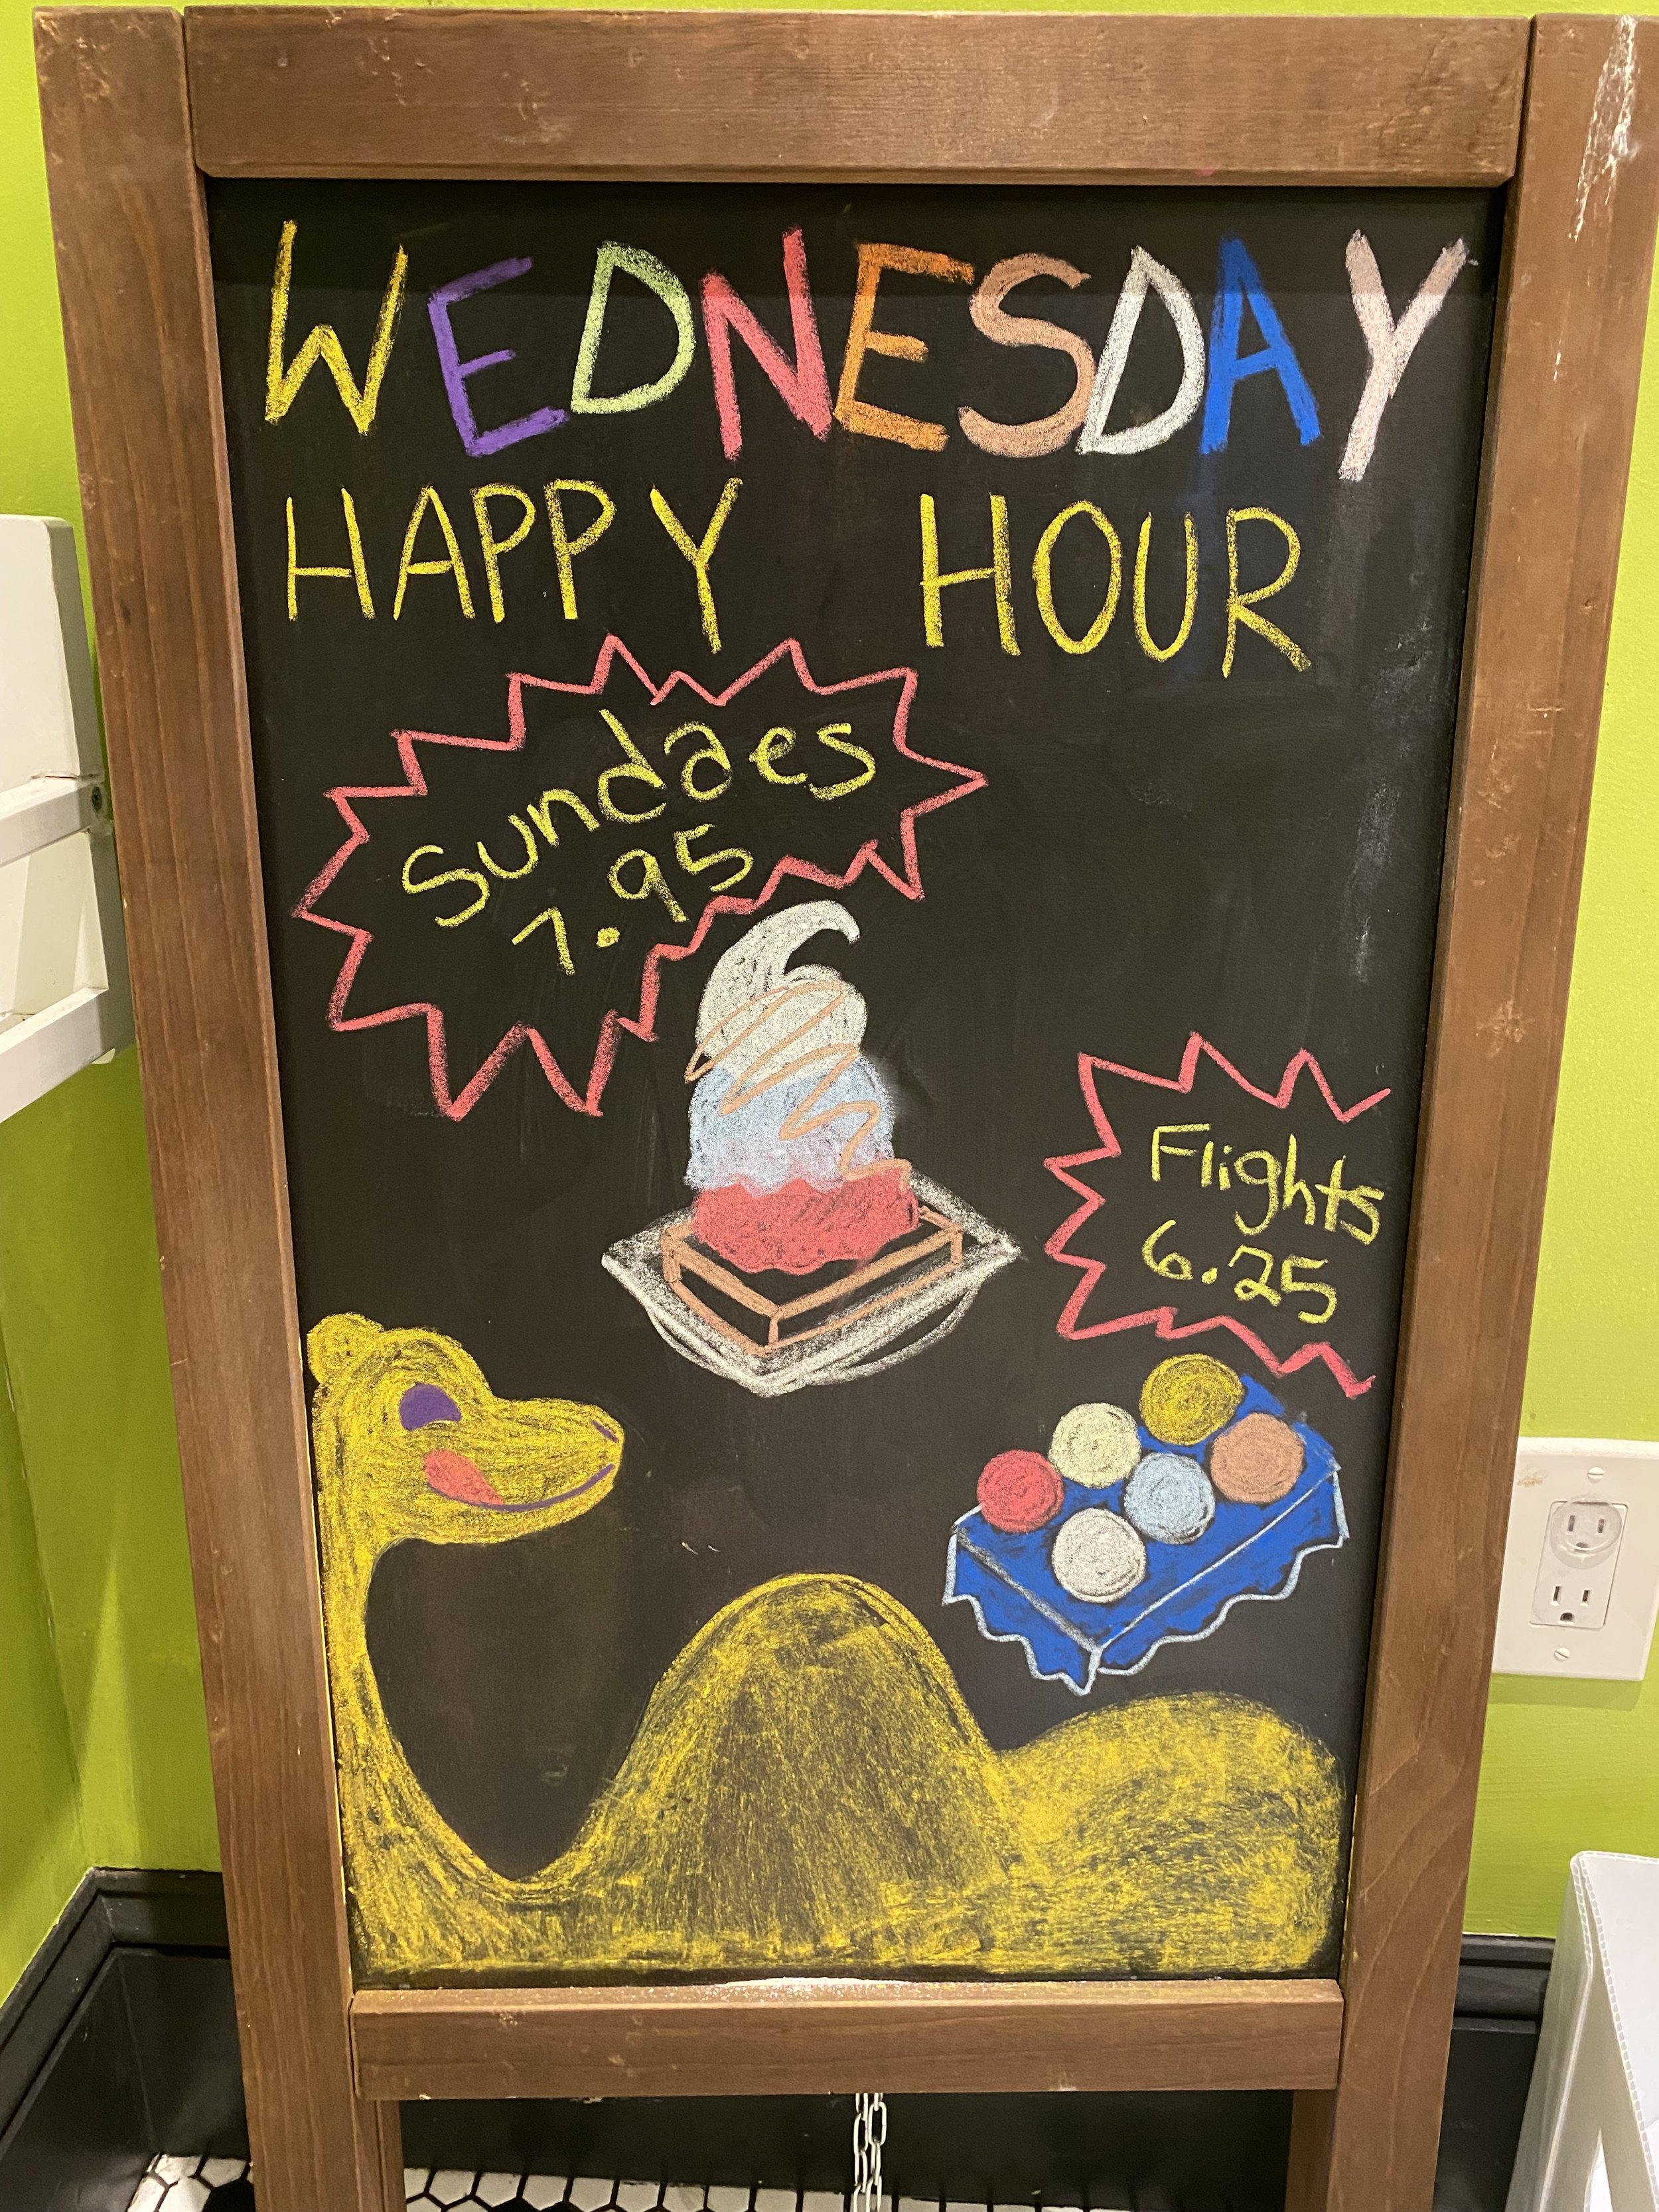 WEDNESDAY
HAPPY HOUR
Sundaes
7.95
Flights
6.25